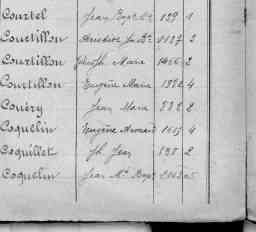 Courtel Jean Bapt. 139 1
Courtillon 1127 2
Courtillon Joseph Marie 1466 2
Courtillon Eugène Marie 1392 4
Couëry Jean Marie 332 2
Coquelin Eugène Armand 1615 4
Coquillet Jh Jean 138 2
Coquelin Jean Me Bapt